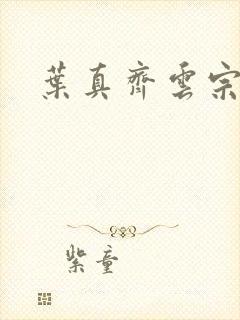 葉真齊雲宗
紫童